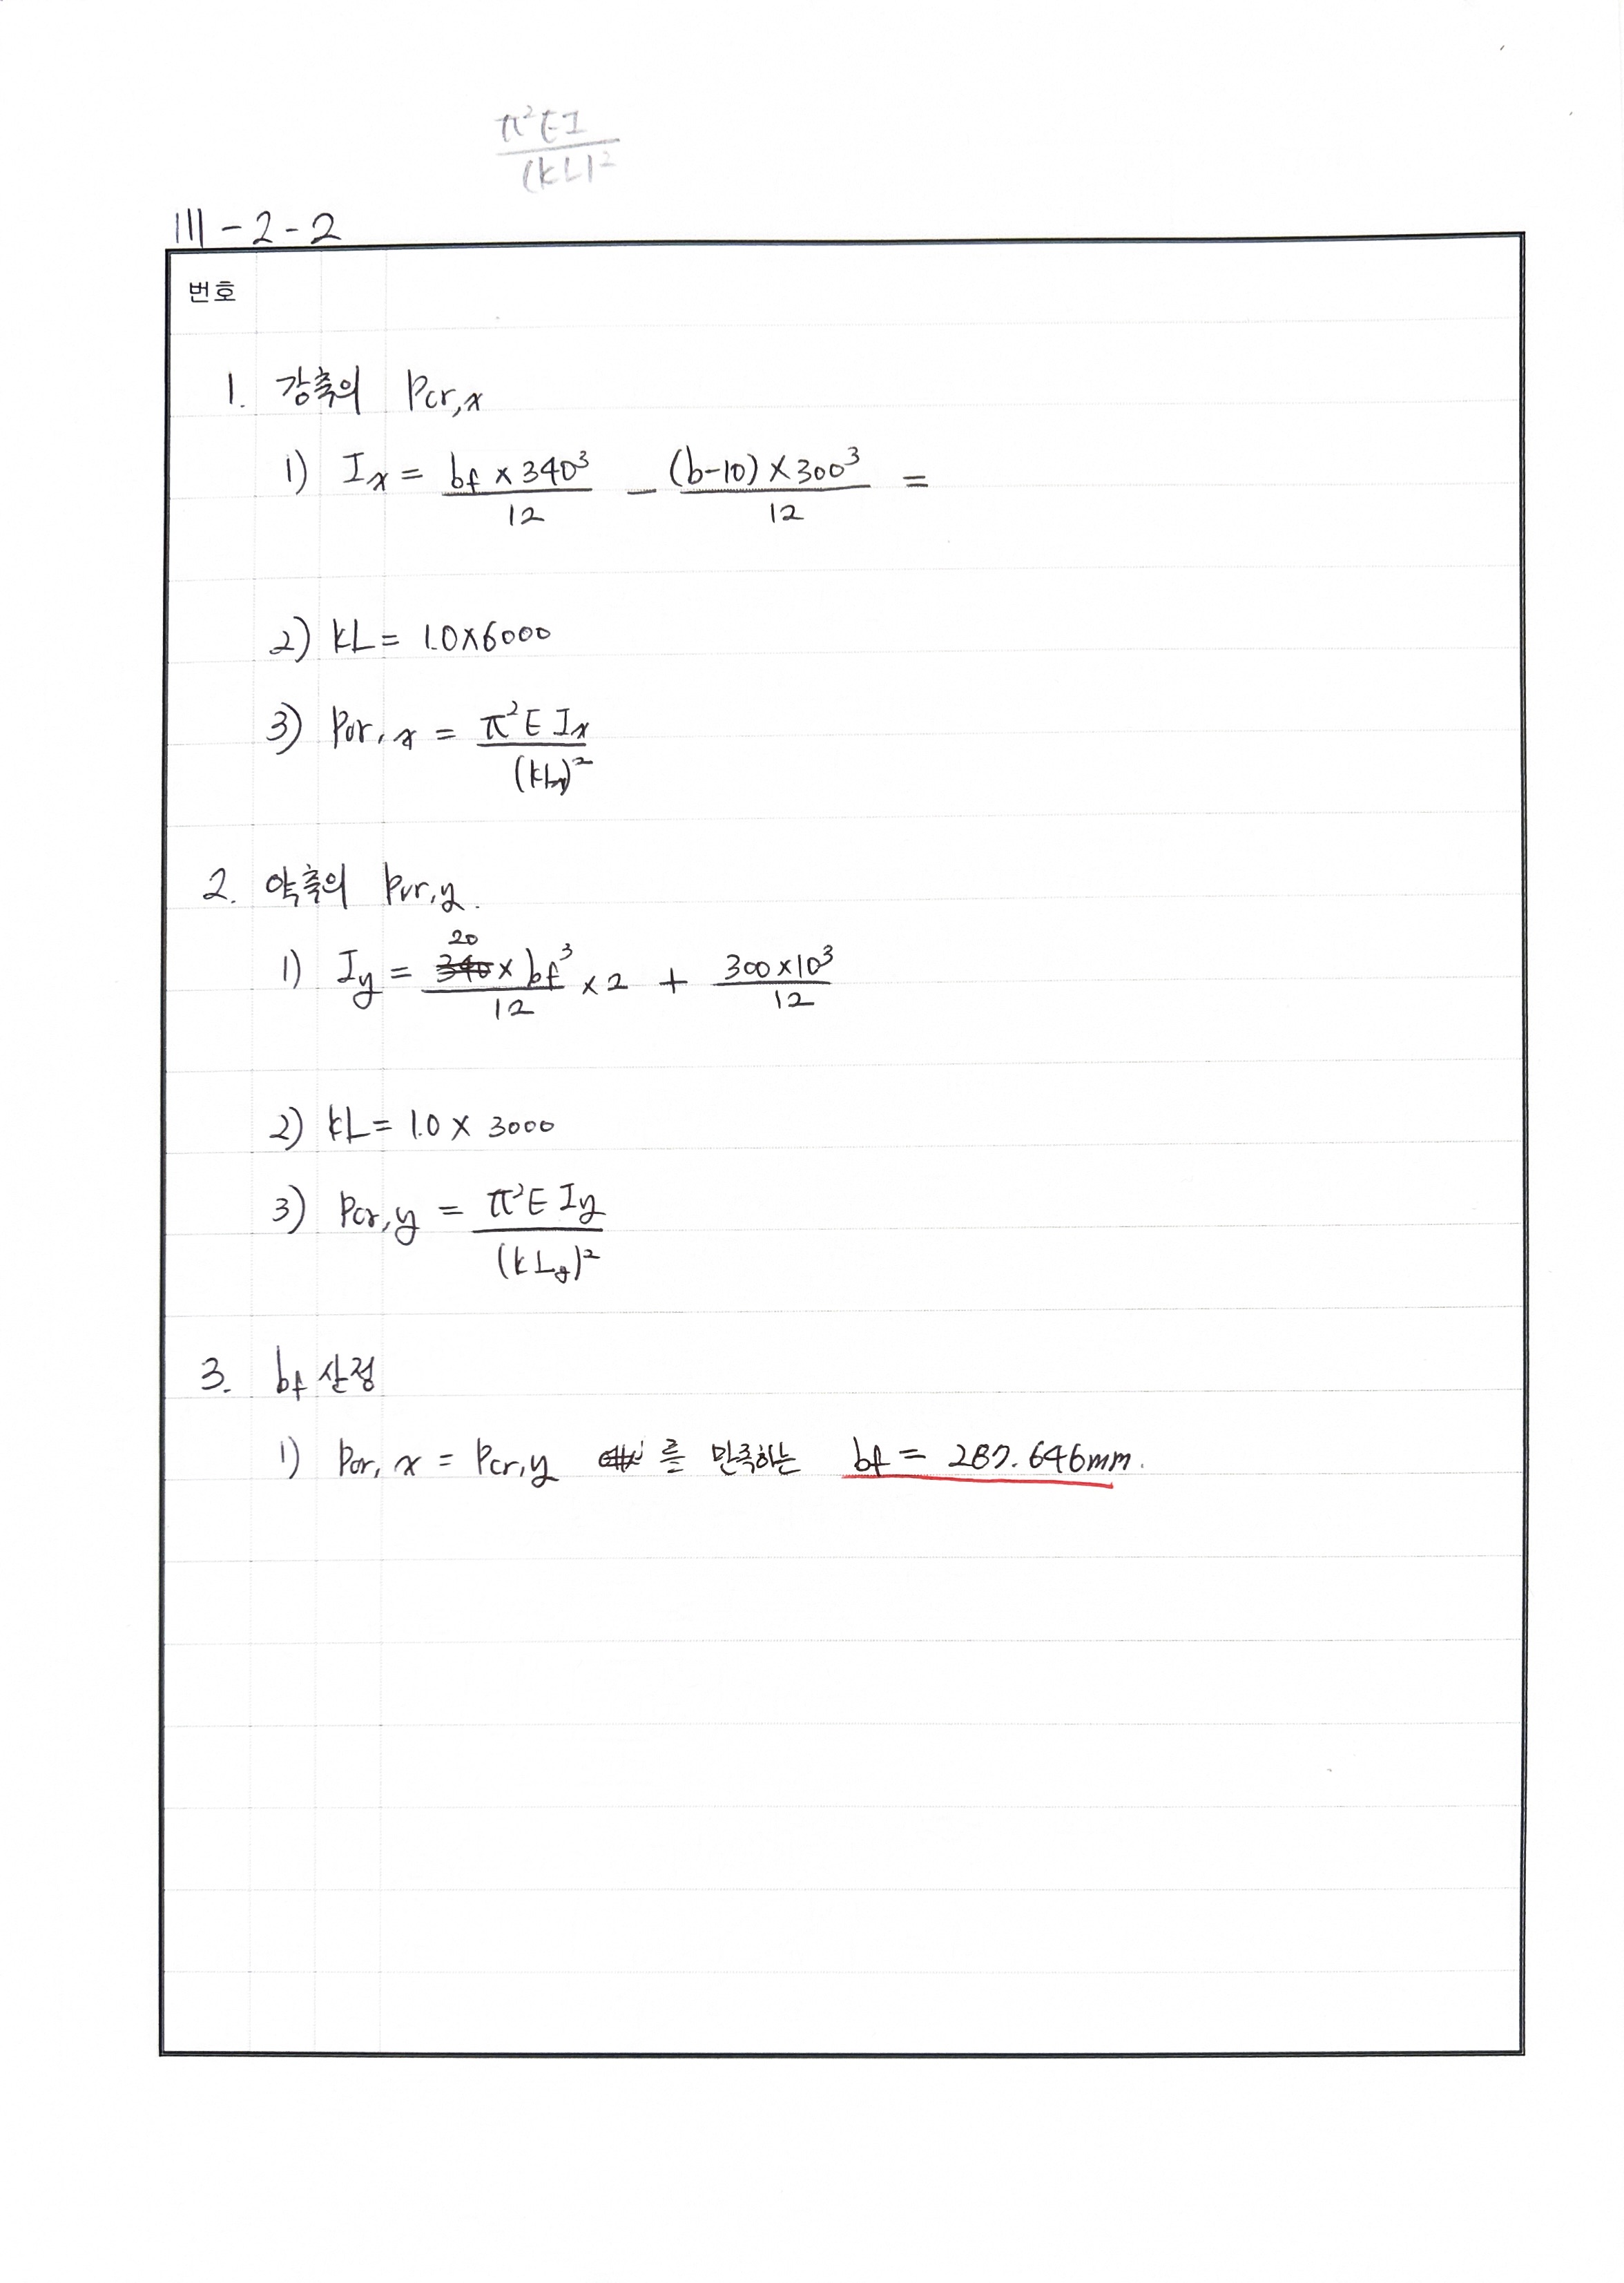 π²EI
(kL)²
III - 2 - 2
번호
1. 강축의 Pcr,x
1) Ix = bf × 340³ / 12 - (b-10) × 300³ / 12 =
2) kL = 1.0×6000
3) Pcr,x = π²E Ix / (kLx)²
2. 약축의 Pcr,y.
1) Iy = 20 × bf³ / 12 × 2 + 300×10³ / 12
2) kL = 1.0 × 3000
3) Pcr,y = π²E Iy / (kLy)²
3. bf 산정
1) Pcr,x = Pcr,y 를 만족하는 bf = 287.646mm.